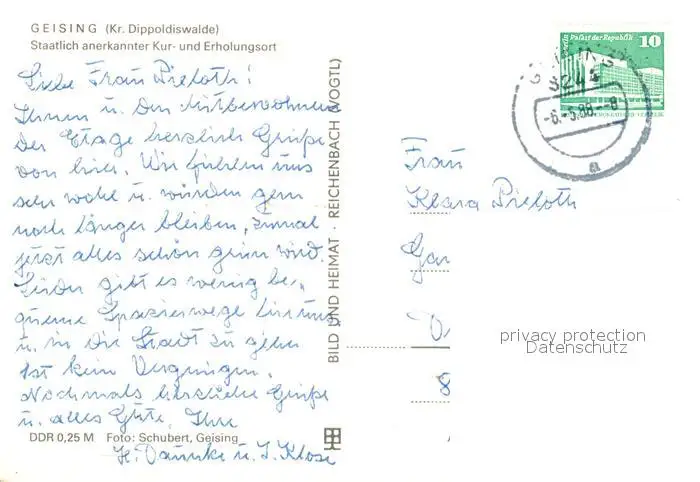 GEISING (Kr. Dippoldiswalde)
Staatlich anerkannter Kur- und Erholungsort
Liebe Frau Pieloth!
Ihnen u. den Mitbewohnern
der Etage herzlich Grüße
von hier. Wir fühlen uns
sehr wohl u. würden gern
noch länger bleiben, zumal
jetzt alles schön grün wird.
Leider gibt es wenig be-
queme Spazierwege hier uns
u. in die Stadt zu gehen
ist kein Vergnügen.
Nochmals herzliche Grüße
u. alles Gute, Ihre
H. u. I. Klose
DDR 0,25 M Foto: Schubert, Geising
BILD UND HEIMAT · REICHENBACH (VOGTL)
Palast der Republik
10
3244
-6.-5.88.-8
a
Frau
Klara Pieloth
privacy protection
Datenschutz